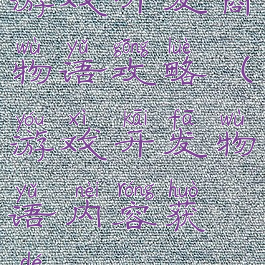 游戏开发商
wù yǔ gōng lüè
物语攻略（
yóu xì kāi fā wù
游戏开发物
yǔ nèi róng huò
语内容获
dé